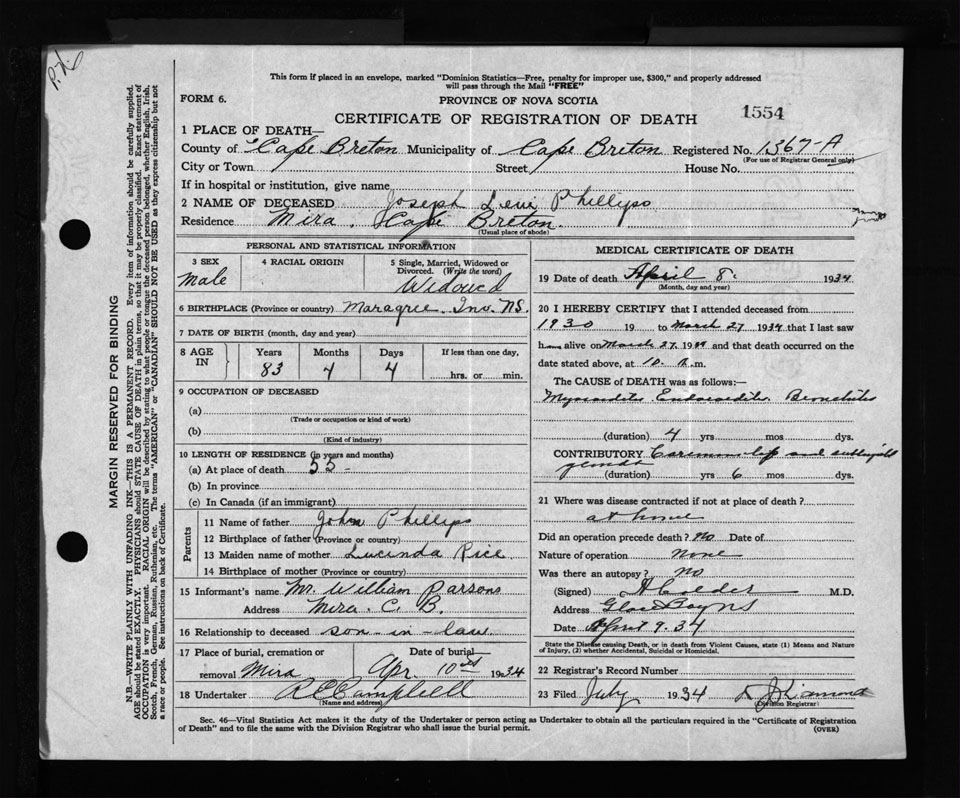 P.N.
This form if placed in an envelope, marked "Dominion Statistics—Free, penalty for improper use, $300," and properly addressed
will pass through the Mail "FREE"
FORM 6.
PROVINCE OF NOVA SCOTIA
1554
CERTIFICATE OF REGISTRATION OF DEATH
1 PLACE OF DEATH—
County of Cape Breton Municipality of Cape Breton Registered No. 1367-A
(For use of Registrar General only)
City or Town Street House No.
If in hospital or institution, give name
2 NAME OF DECEASED Joseph Levi Phillips
Residence Mira, Cape Breton.
(Usual place of abode)
PERSONAL AND STATISTICAL INFORMATION
3 SEX
Male
4 RACIAL ORIGIN
5 Single, Married, Widowed or
Divorced. (Write the word)
Widowed
6 BIRTHPLACE (Province or country) Maragree Inv. NS.
7 DATE OF BIRTH (month, day and year)
8 AGE IN
Years Months Days If less than one day,
83 4 4 hrs. or min.
9 OCCUPATION OF DECEASED
(a)
(Trade or occupation or kind of work)
(b)
(Kind of industry)
10 LENGTH OF RESIDENCE (in years and months)
(a) At place of death 55 -
(b) In province
(c) In Canada (if an immigrant)
Parents
11 Name of father John Phillips
12 Birthplace of father (Province or country)
13 Maiden name of mother Lucinda Rice
14 Birthplace of mother (Province or country)
15 Informant's name Mr. William Parsons
Address Mira. C. B.
16 Relationship to deceased son-in-law
17 Place of burial, cremation or Date of burial
removal Mira Apr 10th 1934
18 Undertaker R C Campbell
(Name and address)
MEDICAL CERTIFICATE OF DEATH
19 Date of death April 8. 1934
(Month, day and year)
20 I HEREBY CERTIFY that I attended deceased from
1930 19 to March 27 1934 that I last saw
h alive on March 27 1934 and that death occurred on the
date stated above, at 10. a. m.
The CAUSE OF DEATH was as follows:—
Myocarditis Endocarditis. Bronchitis
(duration) 4 yrs mos dys.
CONTRIBUTORY and
(duration) yrs 6 mos dys.
21 Where was disease contracted if not at place of death?
at home
Did an operation precede death? no Date of
Nature of operation None
Was there an autopsy? no
(Signed) M.D.
Address Glace Bay NS
Date April 9. 34
State the Disease causing Death, or in death from Violent Causes, state (1) Means and Nature
of Injury, (2) whether Accidental, Suicidal or Homicidal.
22 Registrar's Record Number
23 Filed July 1934
Division Registrar
Sec. 46—Vital Statistics Act makes it the duty of the Undertaker or person acting as Undertaker to obtain all the particulars required in the "Certificate of Registration
of Death" and to file the same with the Division Registrar who shall issue the burial permit.
(OVER)
MARGIN RESERVED FOR BINDING
N.B.—WRITE PLAINLY WITH UNFADING INK—THIS IS A PERMANENT RECORD. Every item of information should be carefully supplied.
AGE should be stated EXACTLY. PHYSICIANS should STATE CAUSE OF DEATH in plain terms, so that it may be properly classified. Exact statement of
OCCUPATION is very important. RACIAL ORIGIN will be described by stating to what people or tongue the deceased person belonged, whether English, Irish,
Scotch, French, German, Russian, Ruthenian, etc. The terms "AMERICAN" or "CANADIAN" SHOULD NOT BE USED as they express citizenship but not
a race or people. See instructions on back of Certificate.